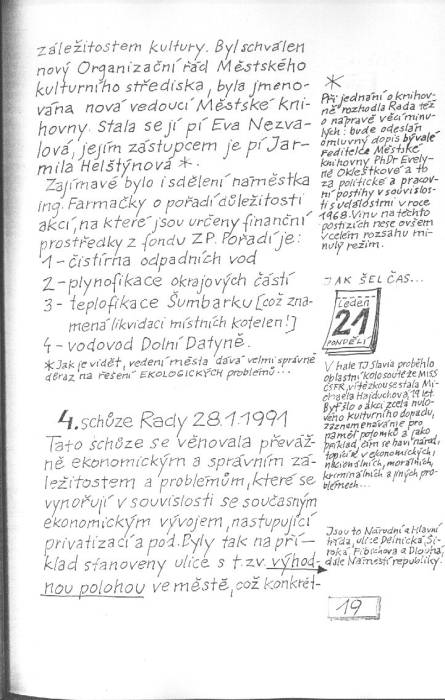 záležitostem kultury. Byl schválen
nový Organizační řád Městského
kulturního střediska, byla jmeno-
vána nová vedoucí Městské kni-
hovny. Stala se jí pí Eva Nezva-
lová, jejím zástupcem je pí Jar-
mila Helštýnová *.
Zajímavé bylo i sdělení náměstka
ing. Farmačky o pořadí důležitosti
akcí, na které jsou určeny finanční
prostředky z fondu ZP. Pořadí je:
1 - čistírna odpadních vod
2 - plynofikace okrajových částí
3 - teplofikace Šumbarku [což zna-
mená likvidaci místních kotelen!]
4 - vodovod Dolní Datyně.
* Jak je vidět, vedení města dává velmi správně
důraz na řešení EKOLOGICKÝCH problémů...
4. schůze Rady 28.1.1991
Tato schůze se věnovala převáž-
ně ekonomickým a správním zá-
ležitostem a problémům, které se
vynořují v souvislosti se současným
ekonomickým vývojem, nastupující
privatizací a pod. Byly tak na pří-
klad stanoveny ulice s t.zv. výhod-
nou polohou ve městě, což konkrét-
*
Při jednání o knihov-
ně rozhodla Rada též
o nápravě věcí minu-
lých: bude odeslán
omluvný dopis bývalé
ředitelce Městské
knihovny PhDr Evely-
ně Okleštkové a to
za politické a pracov-
ní postihy v souvislos-
ti s událostmi v roce
1968. Vinu na těchto
postizích nese ovšem
v celém rozsahu mi-
nulý režim.
JAK ŠEL ČAS...
Leden
21
PONDĚLÍ
V hale TJ Slavia proběhlo
oblastní kolo soutěže MISS
ČSFR, vítězkou se stala Mi-
chaela Hajduchová, 19 let.
Byť šlo o akci zcela nulo-
vého kulturního dopadu,
zaznamenávám je pro
paměť potomků a jako
příklad, čím se baví národ,
topící se v ekonomických,
nacionálních, morálních,
kriminálních a jiných pro-
blémech...
Jsou to Národní a Hlavní
třída, ulice Dělnická, Ši-
roká, Fibichova a Dlouhá,
dále Náměstí republiky.
19